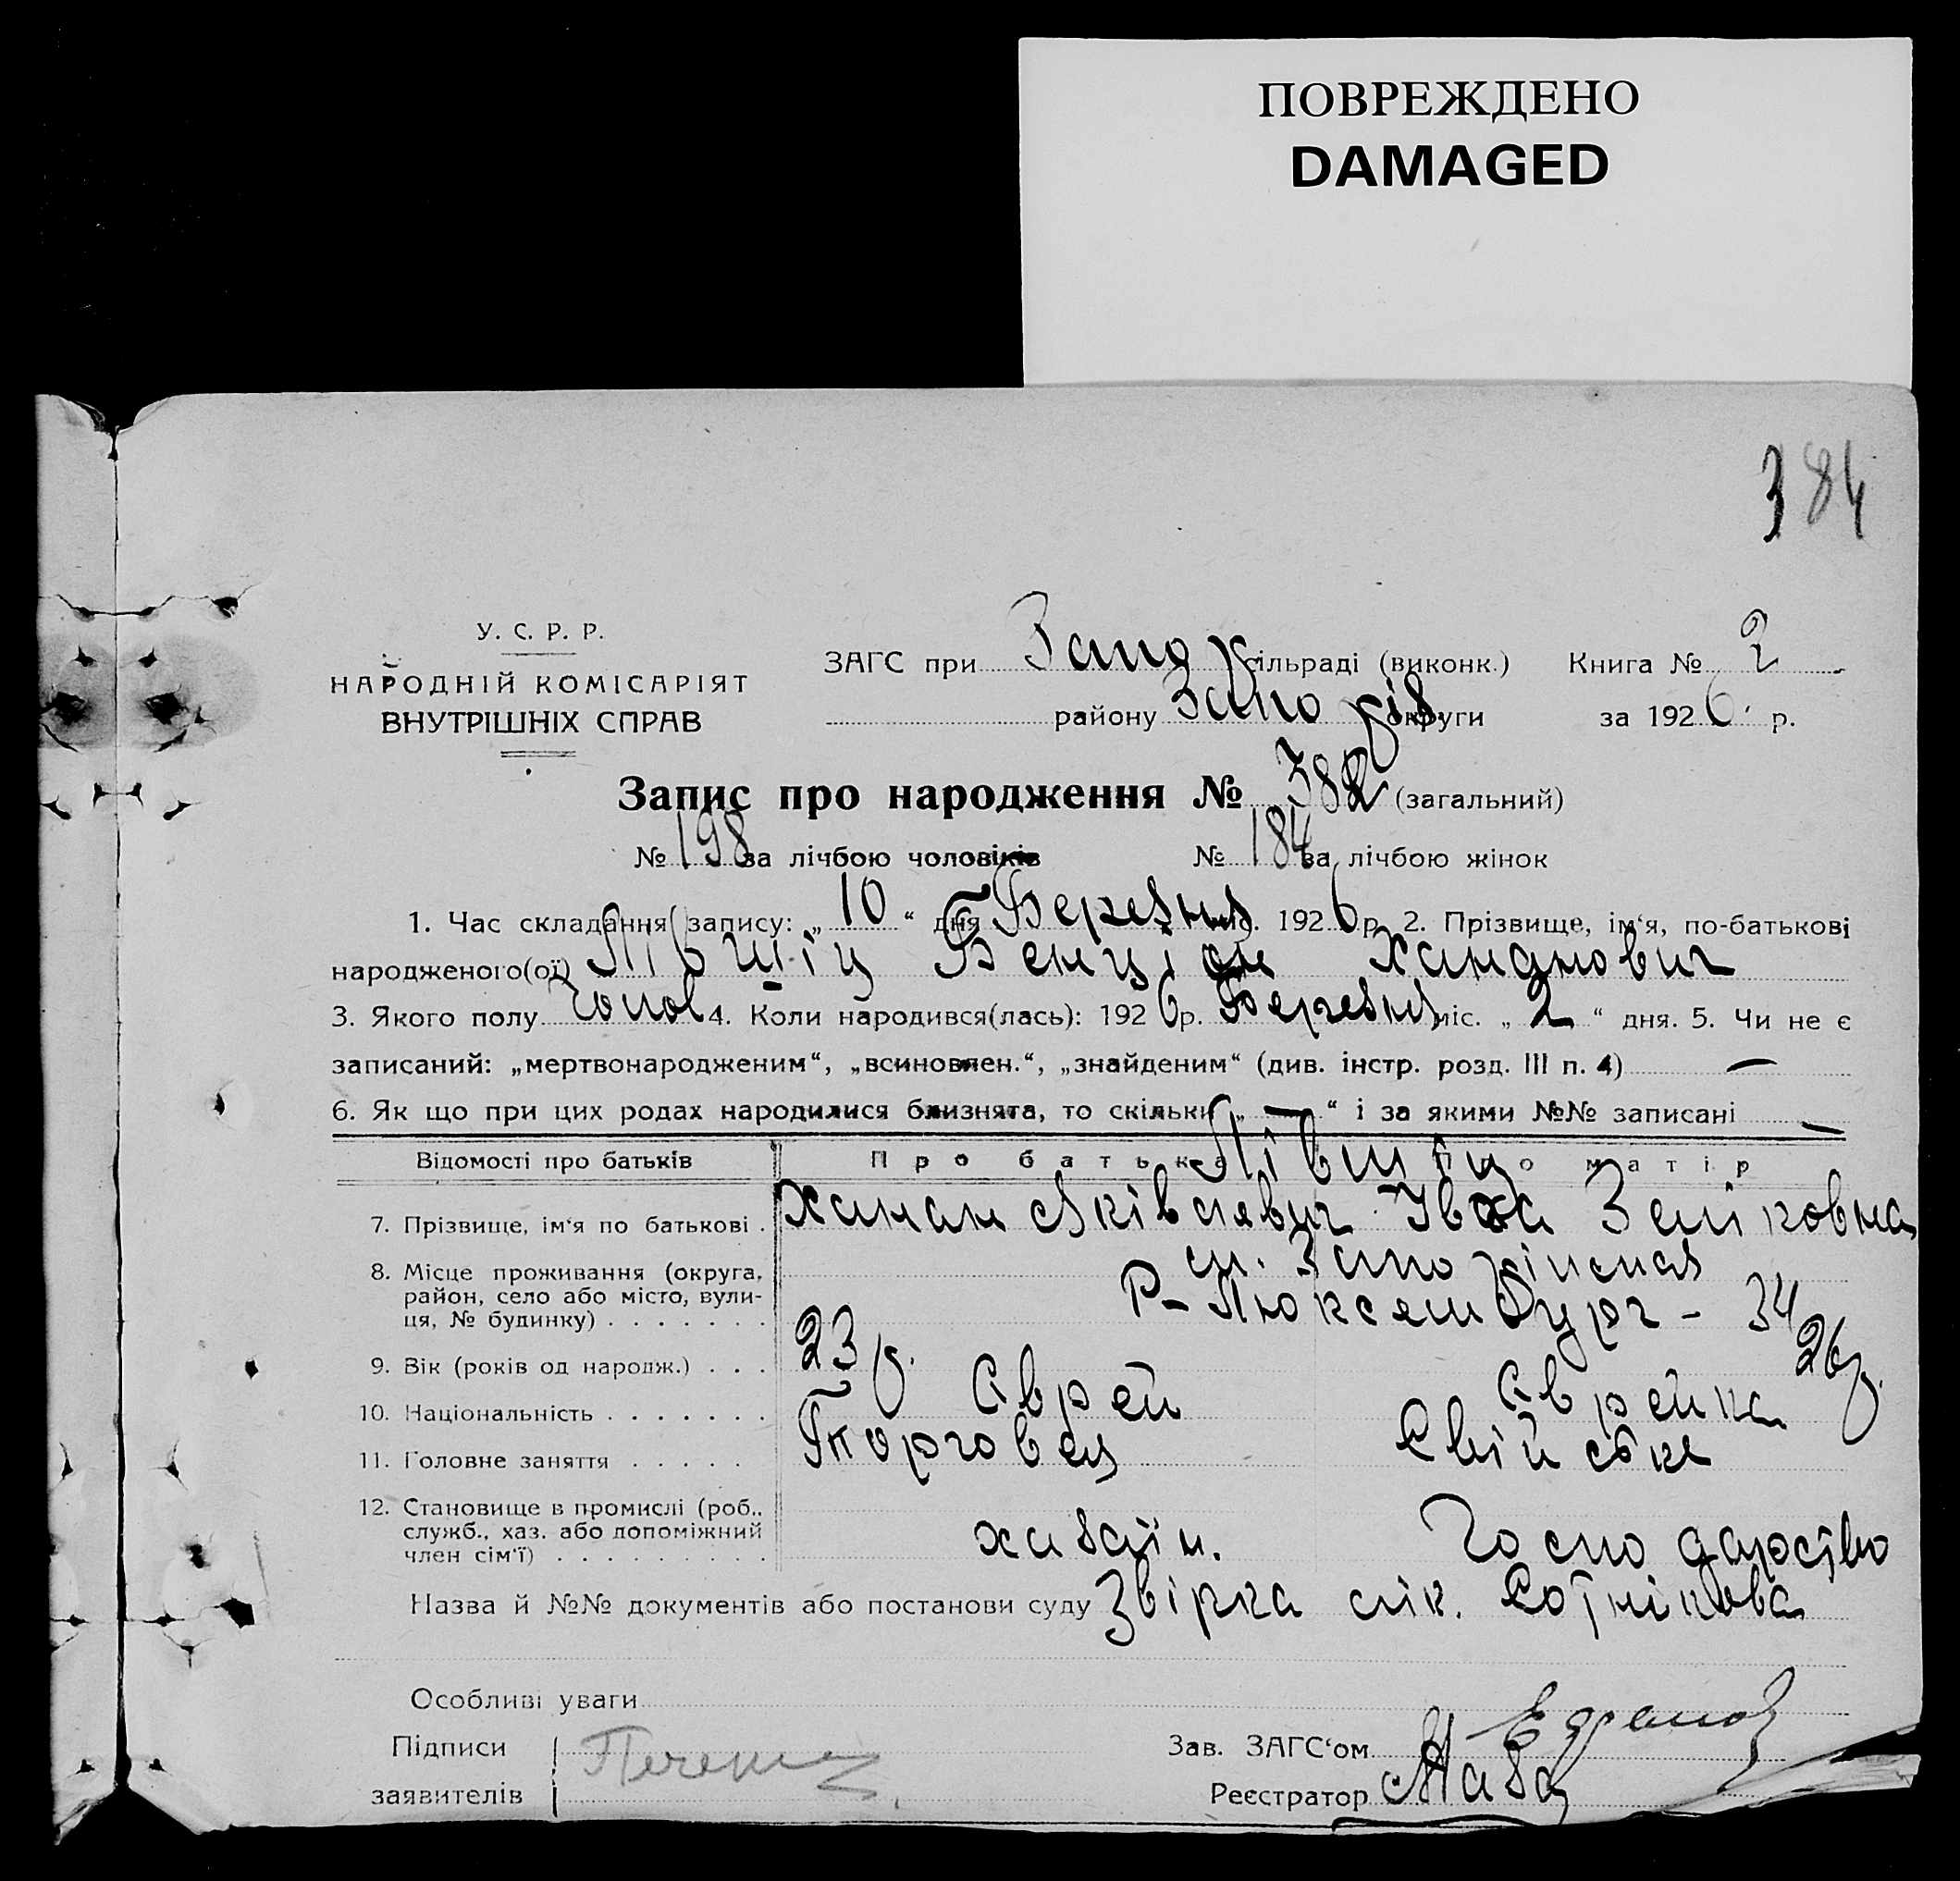 ПОВРЕЖДЕНО
DAMAGED
384
У. С. Р. Р.
НАРОДНІЙ КОМІСАРІЯТ
ВНУТРІШНІХ СПРАВ
ЗАГС при Запор сільраді (виконк.) Книга № 2
району Запоріз округи за 1926 р.
Запис про народження № 382 (загальний)
№ 198 за лічбою чоловіків № 184 за лічбою жінок
1. Час складання запису: „10“ дня Березня міс. 1926 р. 2. Прізвище, ім‘я, по-батькові
народженого(ої) Лівшиц Бенціон Хананович
3. Якого полу Чолов 4. Коли народився(лась): 1926 р. Березня міс. „2“ дня. 5. Чи не є
записаний: „мертвонародженим“, „всиновлен.“, „знайденим“ (див. інстр. розд. III п. 4) —
6. Як що при цих родах народилися близнята, то скільки „—“ і за якими №№ записані —
Відомості про батьків Про батька Про матір
Лівшиц
7. Прізвище, ім‘я по батькові . Ханан Яківлевич Зеліковна
8. Місце проживання (округа, район, село або місто, вулиця, № будинку) . . . . . . . Р-Люксембург - 34
9. Вік (років од народж.) . . . 23 р. 26 р.
10. Національність . . . . . . . Єврей Єврейка
11. Головне заняття . . . . . Торговля Свійське
12. Становище в промислі (роб., служб., хаз. або допоміжний член сім‘ї) . . . . . . . . . хазаїн. Господарство
Назва й №№ документів або постанови суду Звірка Сотнікова
Особливі уваги
Підписи
заявителів
Зав. ЗАГС‘ом
Реєстратор